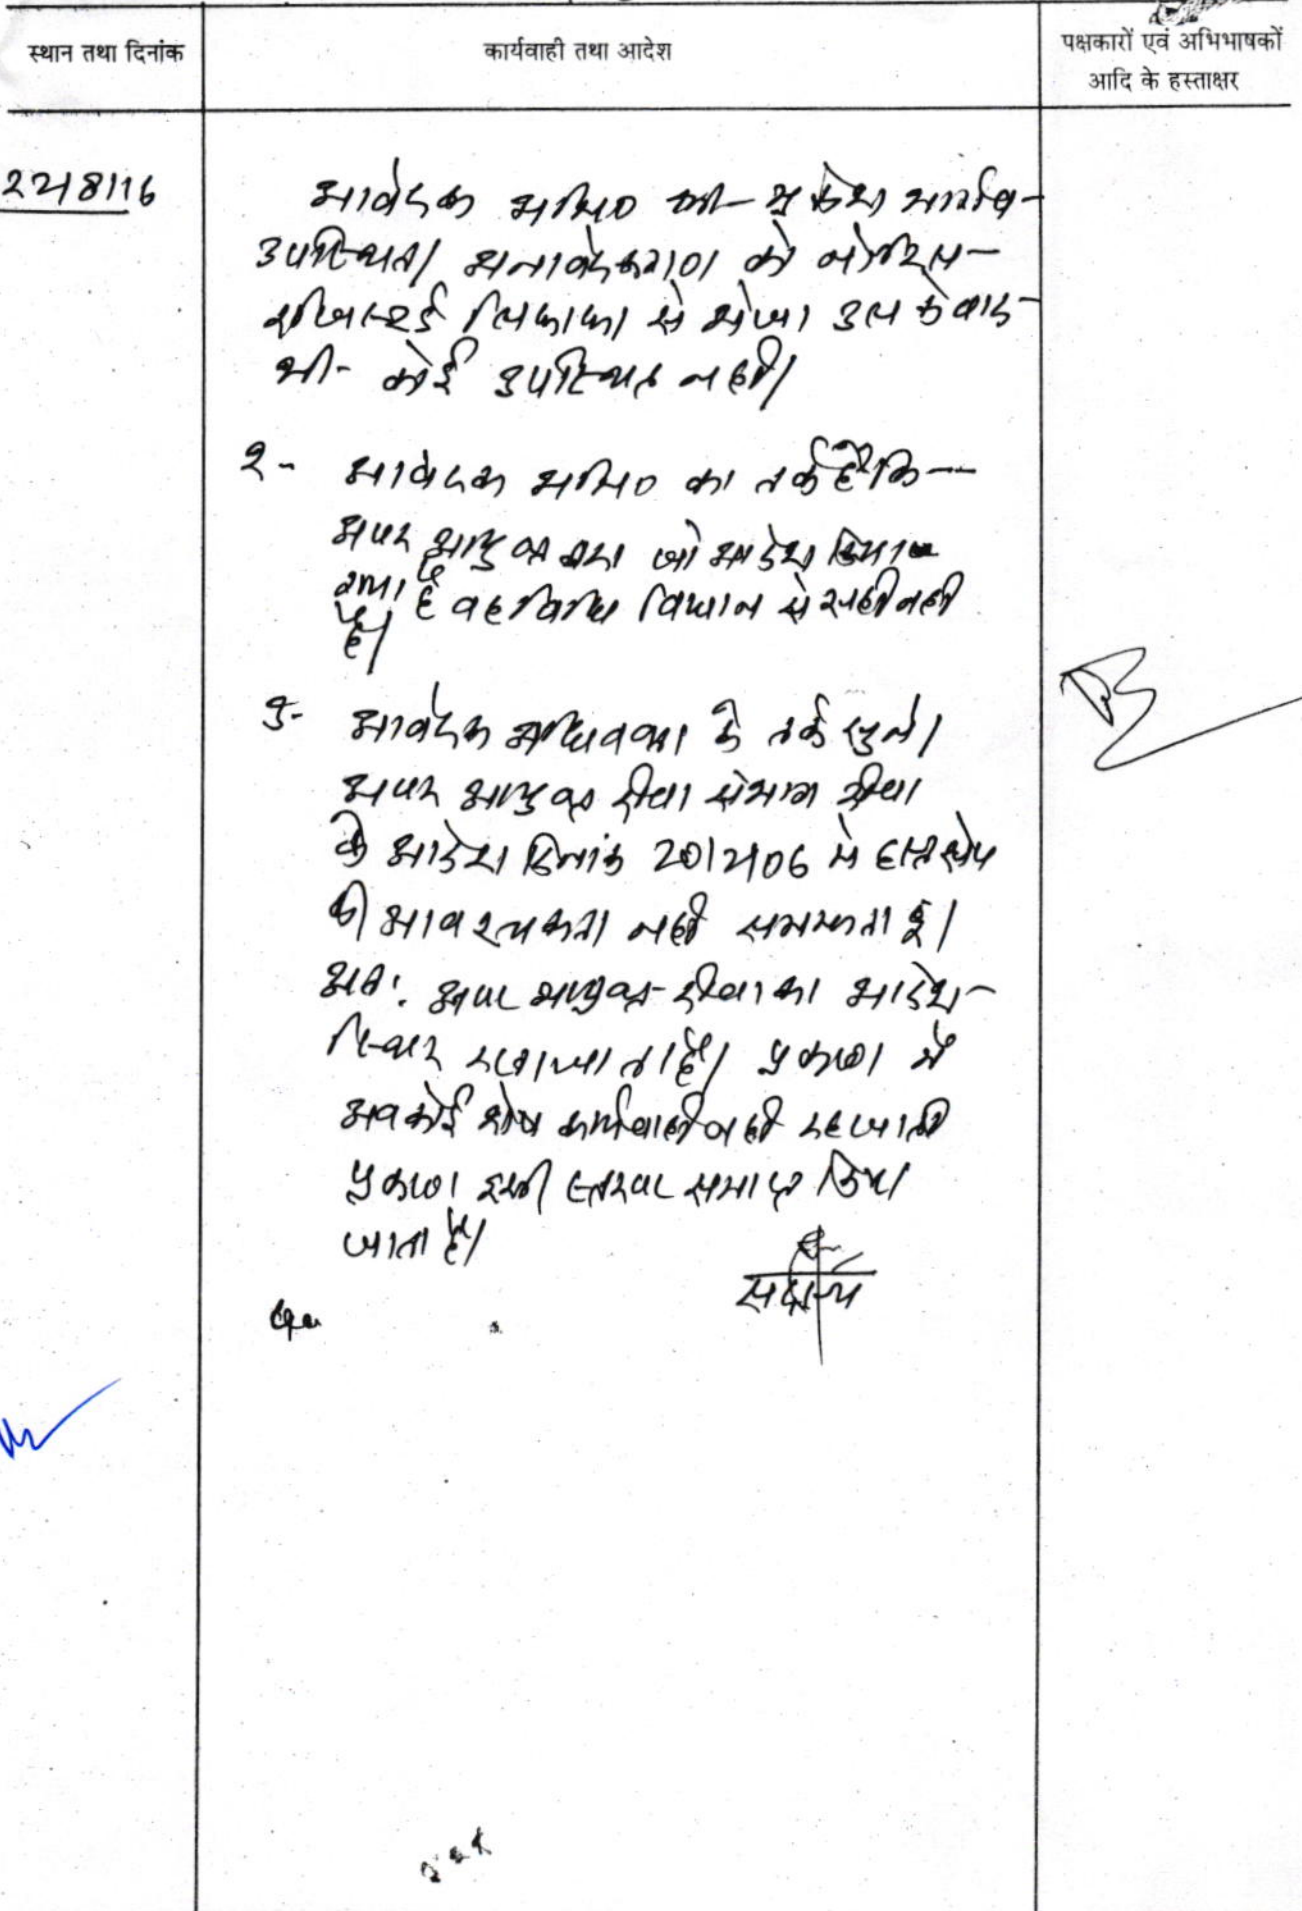 स्थान तथा दिनांक
कार्यवाही तथा आदेश
पक्षकारों एवं अभिभाषकों
आदि के हस्ताक्षर
22/8/16
आवेदक अभि० श्री मुकेश भार्गव
उपस्थित। अनावेदकगण को नोटिस
रजिस्टर्ड लिफाफा से भेजा उसके बाद
भी कोई उपस्थित नही।
2- आवेदक अभि० का तर्क है कि
अपर आयुक्त द्वारा जो आदेश दिया
गया है वह विधि विधान से सही नही
है।
3- आवेदक अधिवक्ता के तर्क सुने।
अपर आयुक्त रीवा संभाग रीवा
के आदेश दिनांक 20/2/06 मे हस्तक्षेप
की आवश्यकता नही समझता हूँ।
अतः अपर आयुक्त रीवा का आदेश
स्थिर रखा जाता है। प्रकरण मे
अब कोई शेष कार्यवाही नही रह जाती
प्रकरण इसी स्तर पर समाप्त किया
जाता है।
सदस्य